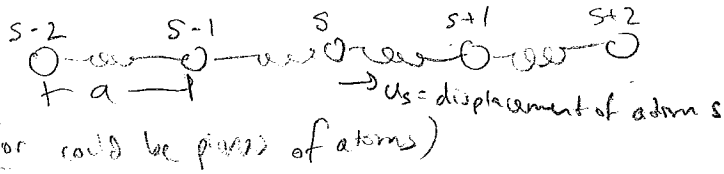 s-2 s-1 s s+1 s+2
a → uₛ = displacement of atom s
or could be planes of atoms)